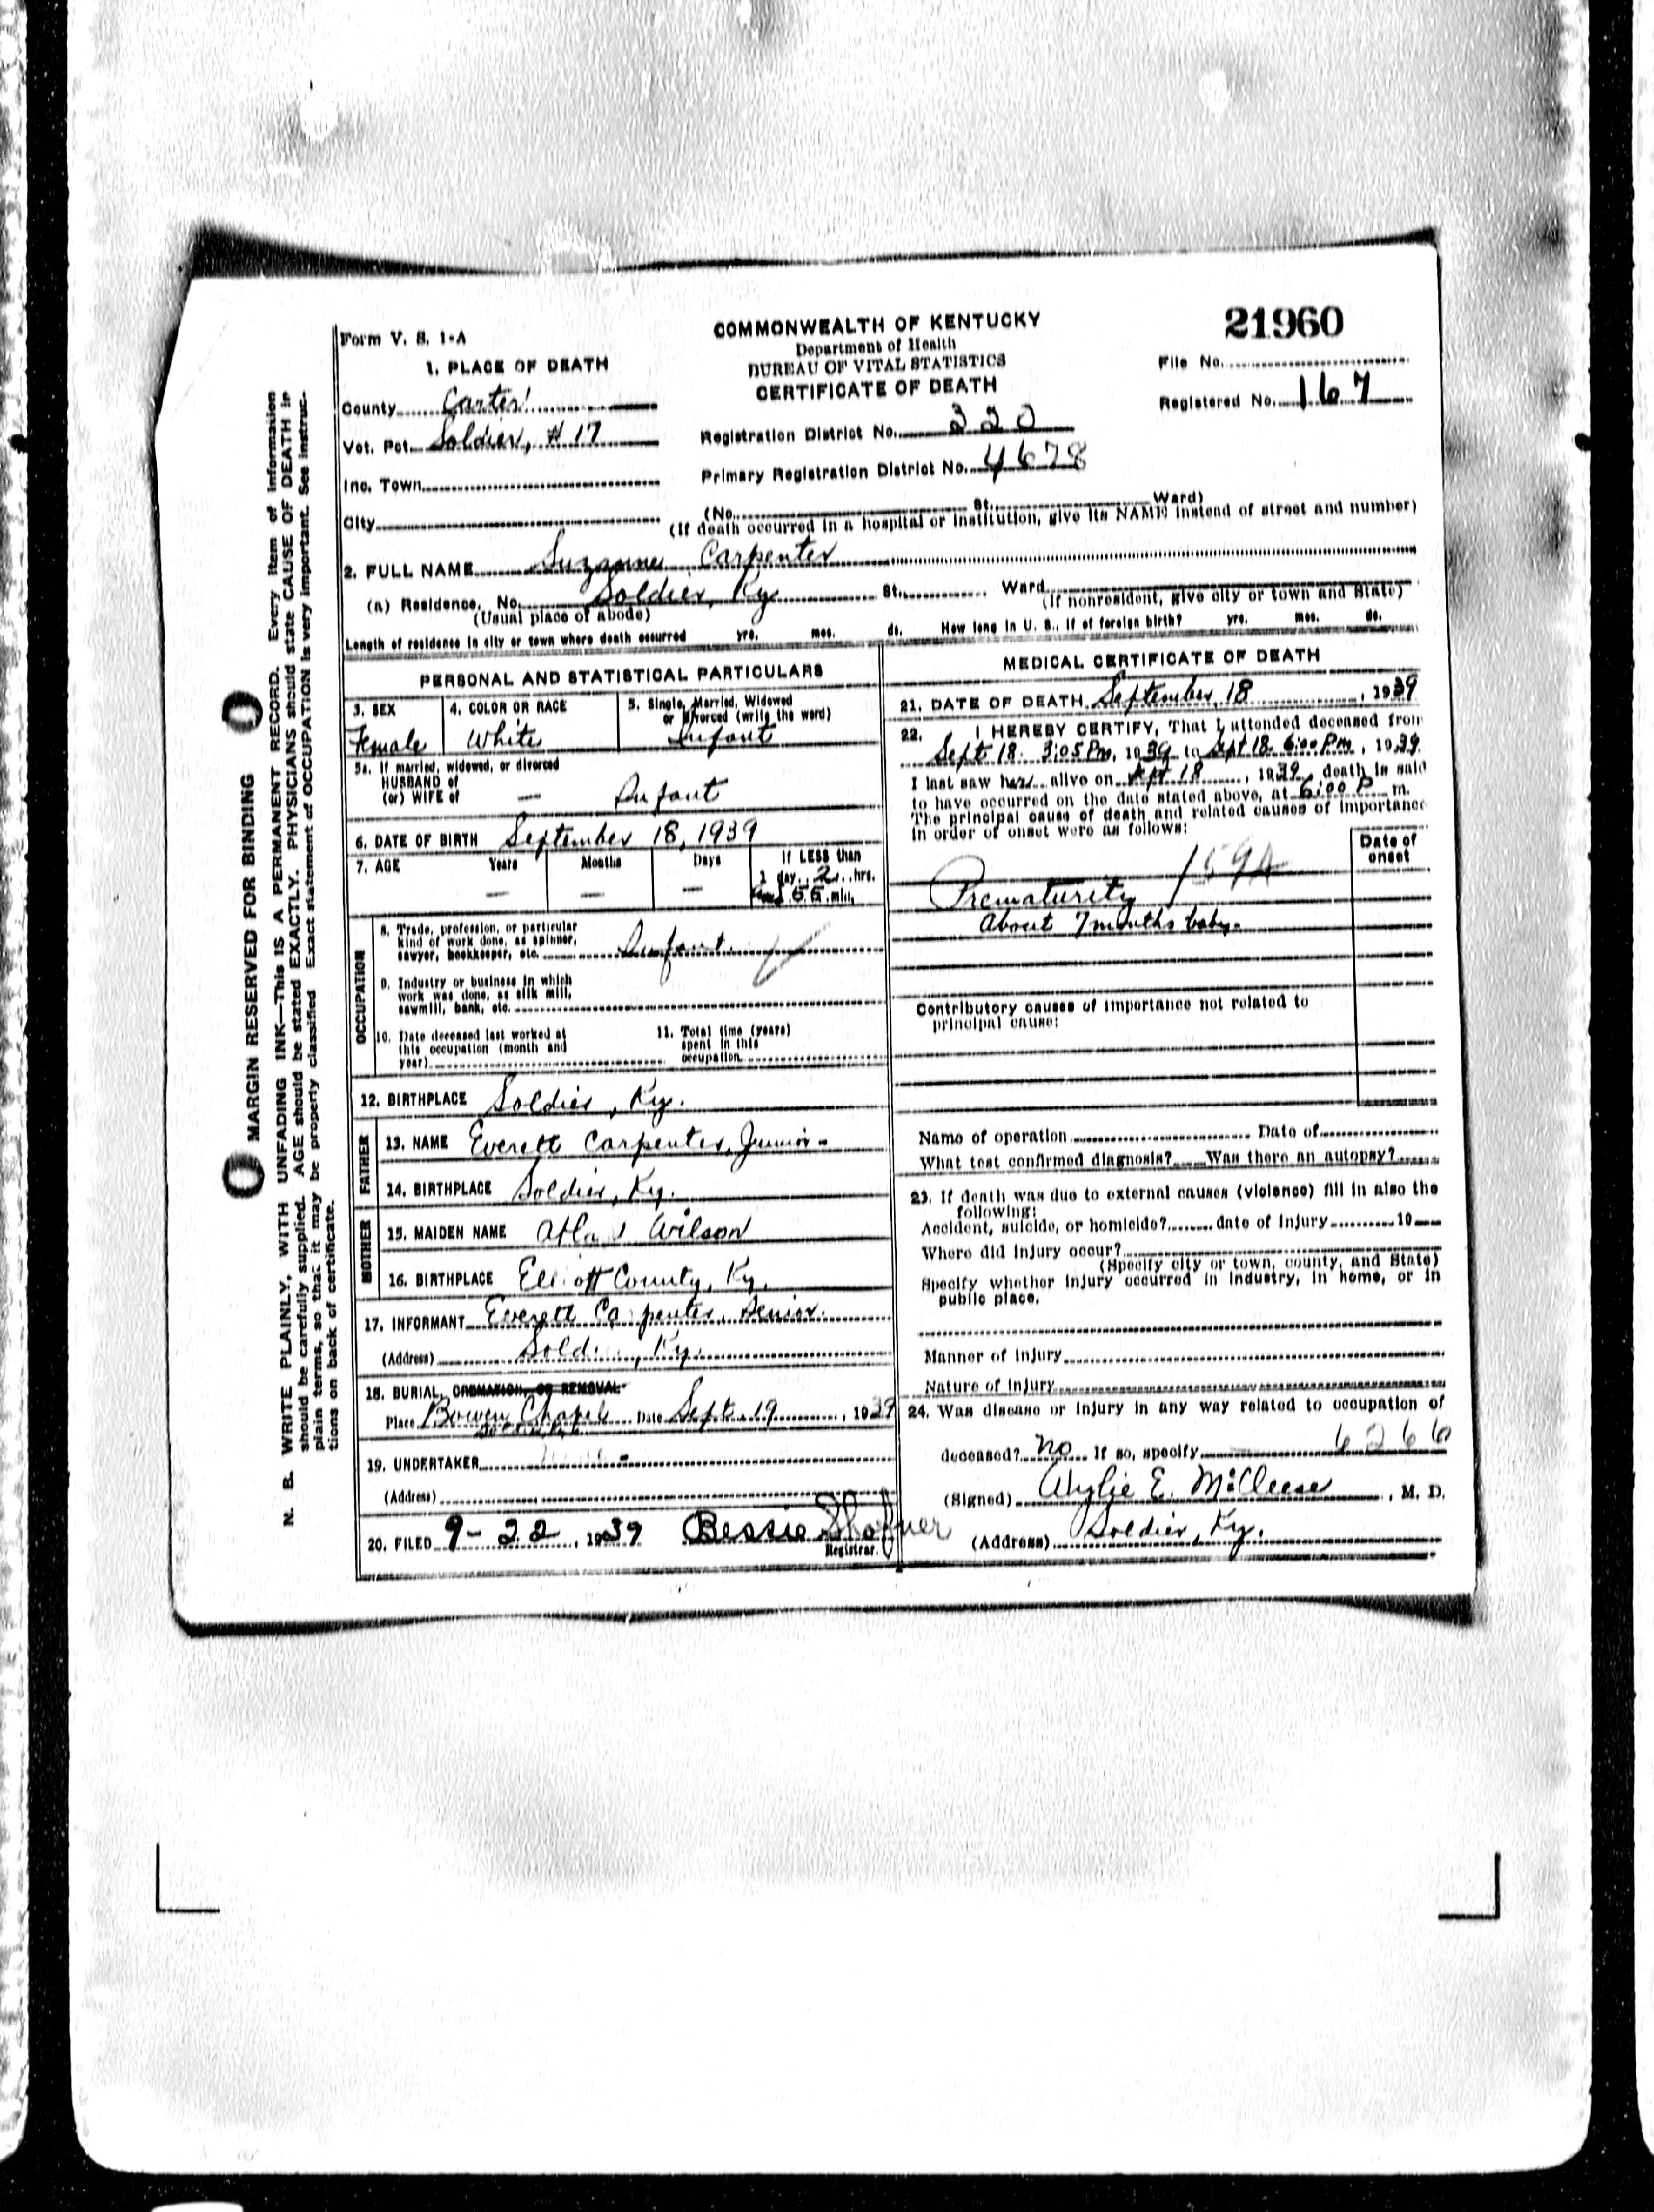 Form V. S. 1-A
COMMONWEALTH OF KENTUCKY
Department of Health
BUREAU OF VITAL STATISTICS
CERTIFICATE OF DEATH
21960
File No.
Registered No. 167
1. PLACE OF DEATH
County Carter
Vot. Pct. Soldier, #17
Inc. Town
City
Registration District No. 220
Primary Registration District No. 4678
(No. St. Ward)
(If death occurred in a hospital or institution, give its NAME instead of street and number)
2. FULL NAME Suzanne Carpenter
(a) Residence. No. Soldier, Ky St. Ward
(Usual place of abode) (If nonresident, give city or town and State)
Length of residence in city or town where death occurred yrs. mos. ds. How long in U. S., if of foreign birth? yrs. mos. ds.
PERSONAL AND STATISTICAL PARTICULARS
3. SEX
Female
4. COLOR OR RACE
White
5. Single, Married, Widowed
or Divorced (write the word)
Infant
5a. If married, widowed, or divorced
HUSBAND of
(or) WIFE of — Infant
6. DATE OF BIRTH September 18, 1939
7. AGE Years Months Days If LESS than
1 day, 2 hrs.
— — — 55 min.
OCCUPATION
8. Trade, profession, or particular
kind of work done, as spinner,
sawyer, bookkeeper, etc. Infant
9. Industry or business in which
work was done, as silk mill,
sawmill, bank, etc.
10. Date deceased last worked at
this occupation (month and
year)
11. Total time (years)
spent in this
occupation
12. BIRTHPLACE Soldier, Ky.
FATHER
13. NAME Everett Carpenter, Junior
14. BIRTHPLACE Soldier, Ky.
MOTHER
15. MAIDEN NAME Wilson
16. BIRTHPLACE Elliott County, Ky.
17. INFORMANT Everett Carpenter, Senior.
(Address) Soldier, Ky.
18. BURIAL, CREMATION, OR REMOVAL
Place Bowen Chapel Date Sept. 19, 1939
19. UNDERTAKER
(Address)
20. FILED 9-22, 1939 Bessie
Registrar.
MEDICAL CERTIFICATE OF DEATH
21. DATE OF DEATH September, 18, 1939
22. I HEREBY CERTIFY, That I attended deceased from
Sept 18 3:05 Pm, 1939 to Sept 18 6:00 Pm, 1939
I last saw her alive on Sept 18, 1939, death is said
to have occurred on the date stated above, at 6:00 P m.
The principal cause of death and related causes of importance
in order of onset were as follows:
Date of
onset
Prematurity 159A
About 7 months baby.
Contributory causes of importance not related to
principal cause:
Name of operation Date of
What test confirmed diagnosis? Was there an autopsy?
23. If death was due to external causes (violence) fill in also the
following:
Accident, suicide, or homicide? date of injury 19
Where did injury occur?
(Specify city or town, county, and State)
Specify whether injury occurred in industry, in home, or in
public place.
Manner of injury
Nature of injury
24. Was disease or injury in any way related to occupation of
deceased? No If so, specify 6266
(Signed) Wylie E. McCleese, M. D.
(Address) Soldier, Ky.
MARGIN RESERVED FOR BINDING
N. B. WRITE PLAINLY, WITH UNFADING INK—This IS A PERMANENT RECORD. Every item of information
should be carefully supplied. AGE should be stated EXACTLY. PHYSICIANS should state CAUSE OF DEATH in
plain terms, so that it may be properly classified. Exact statement of OCCUPATION is very important. See instruc-
tions on back of certificate.